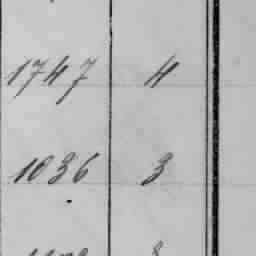 1747 4
1036 3